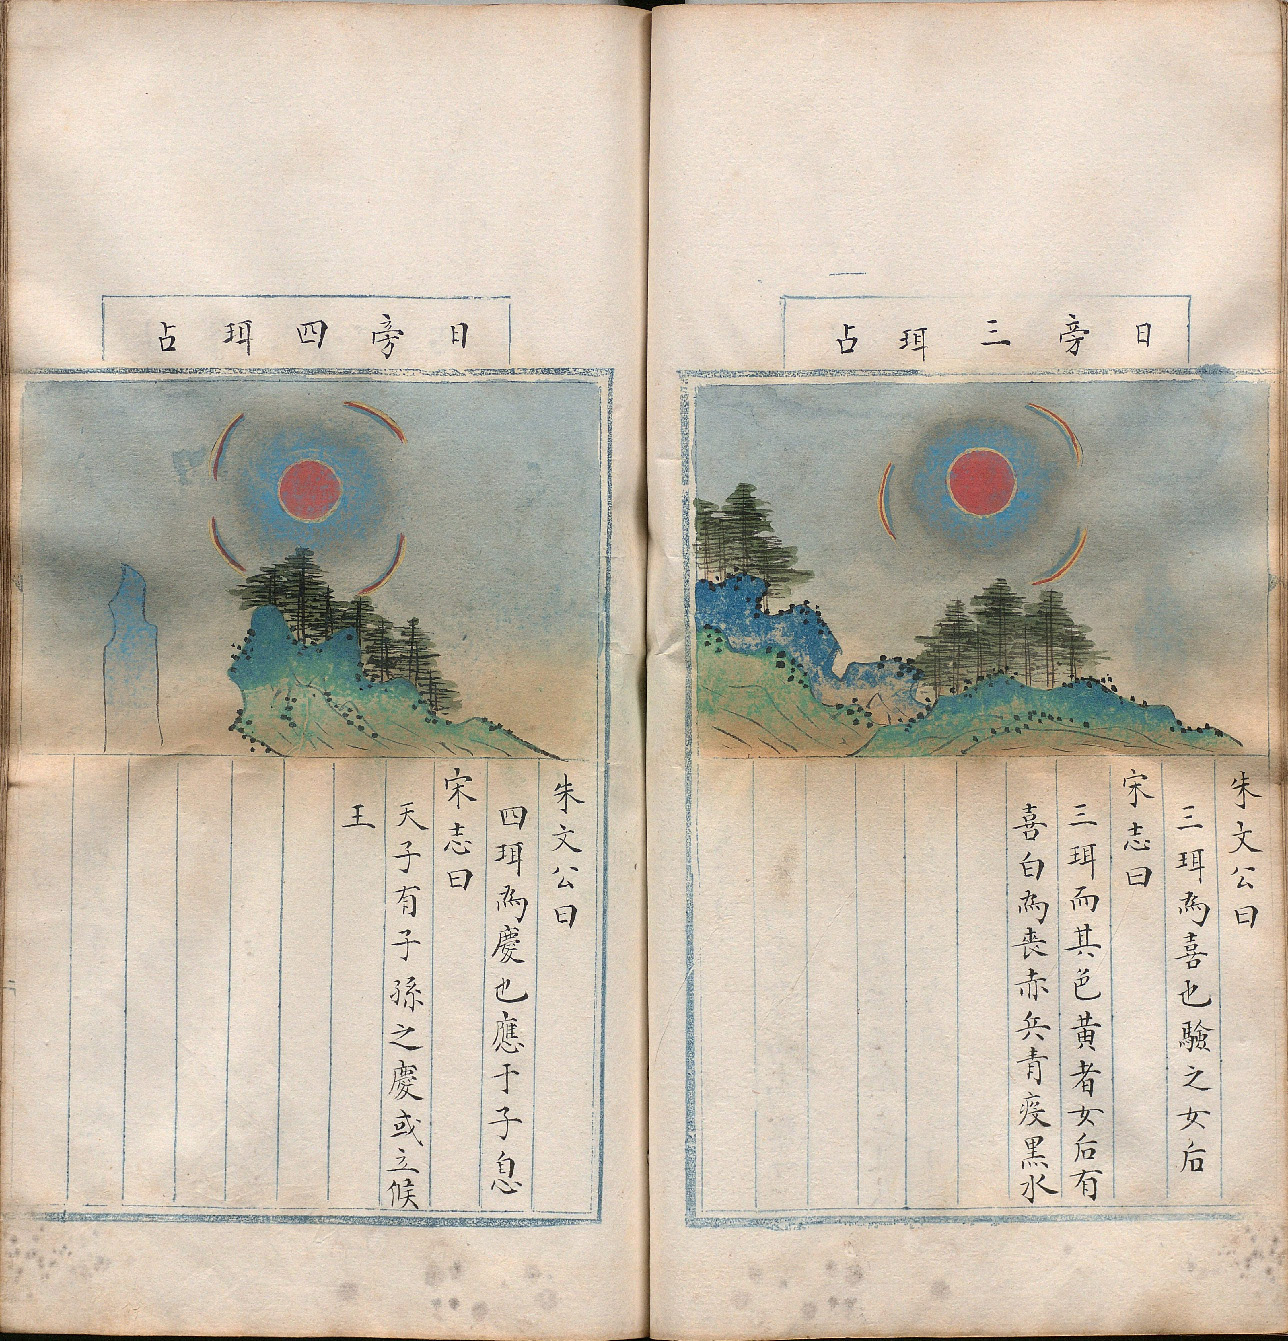 日旁三珥占
朱文公曰
三珥為喜也驗之女后
宋志曰
三珥而其色黃者女后有
喜白為喪赤兵青疫黑水
日旁四珥占
朱文公曰
四珥為慶也應于子息
宋志曰
天子有子孫之慶或立候
王